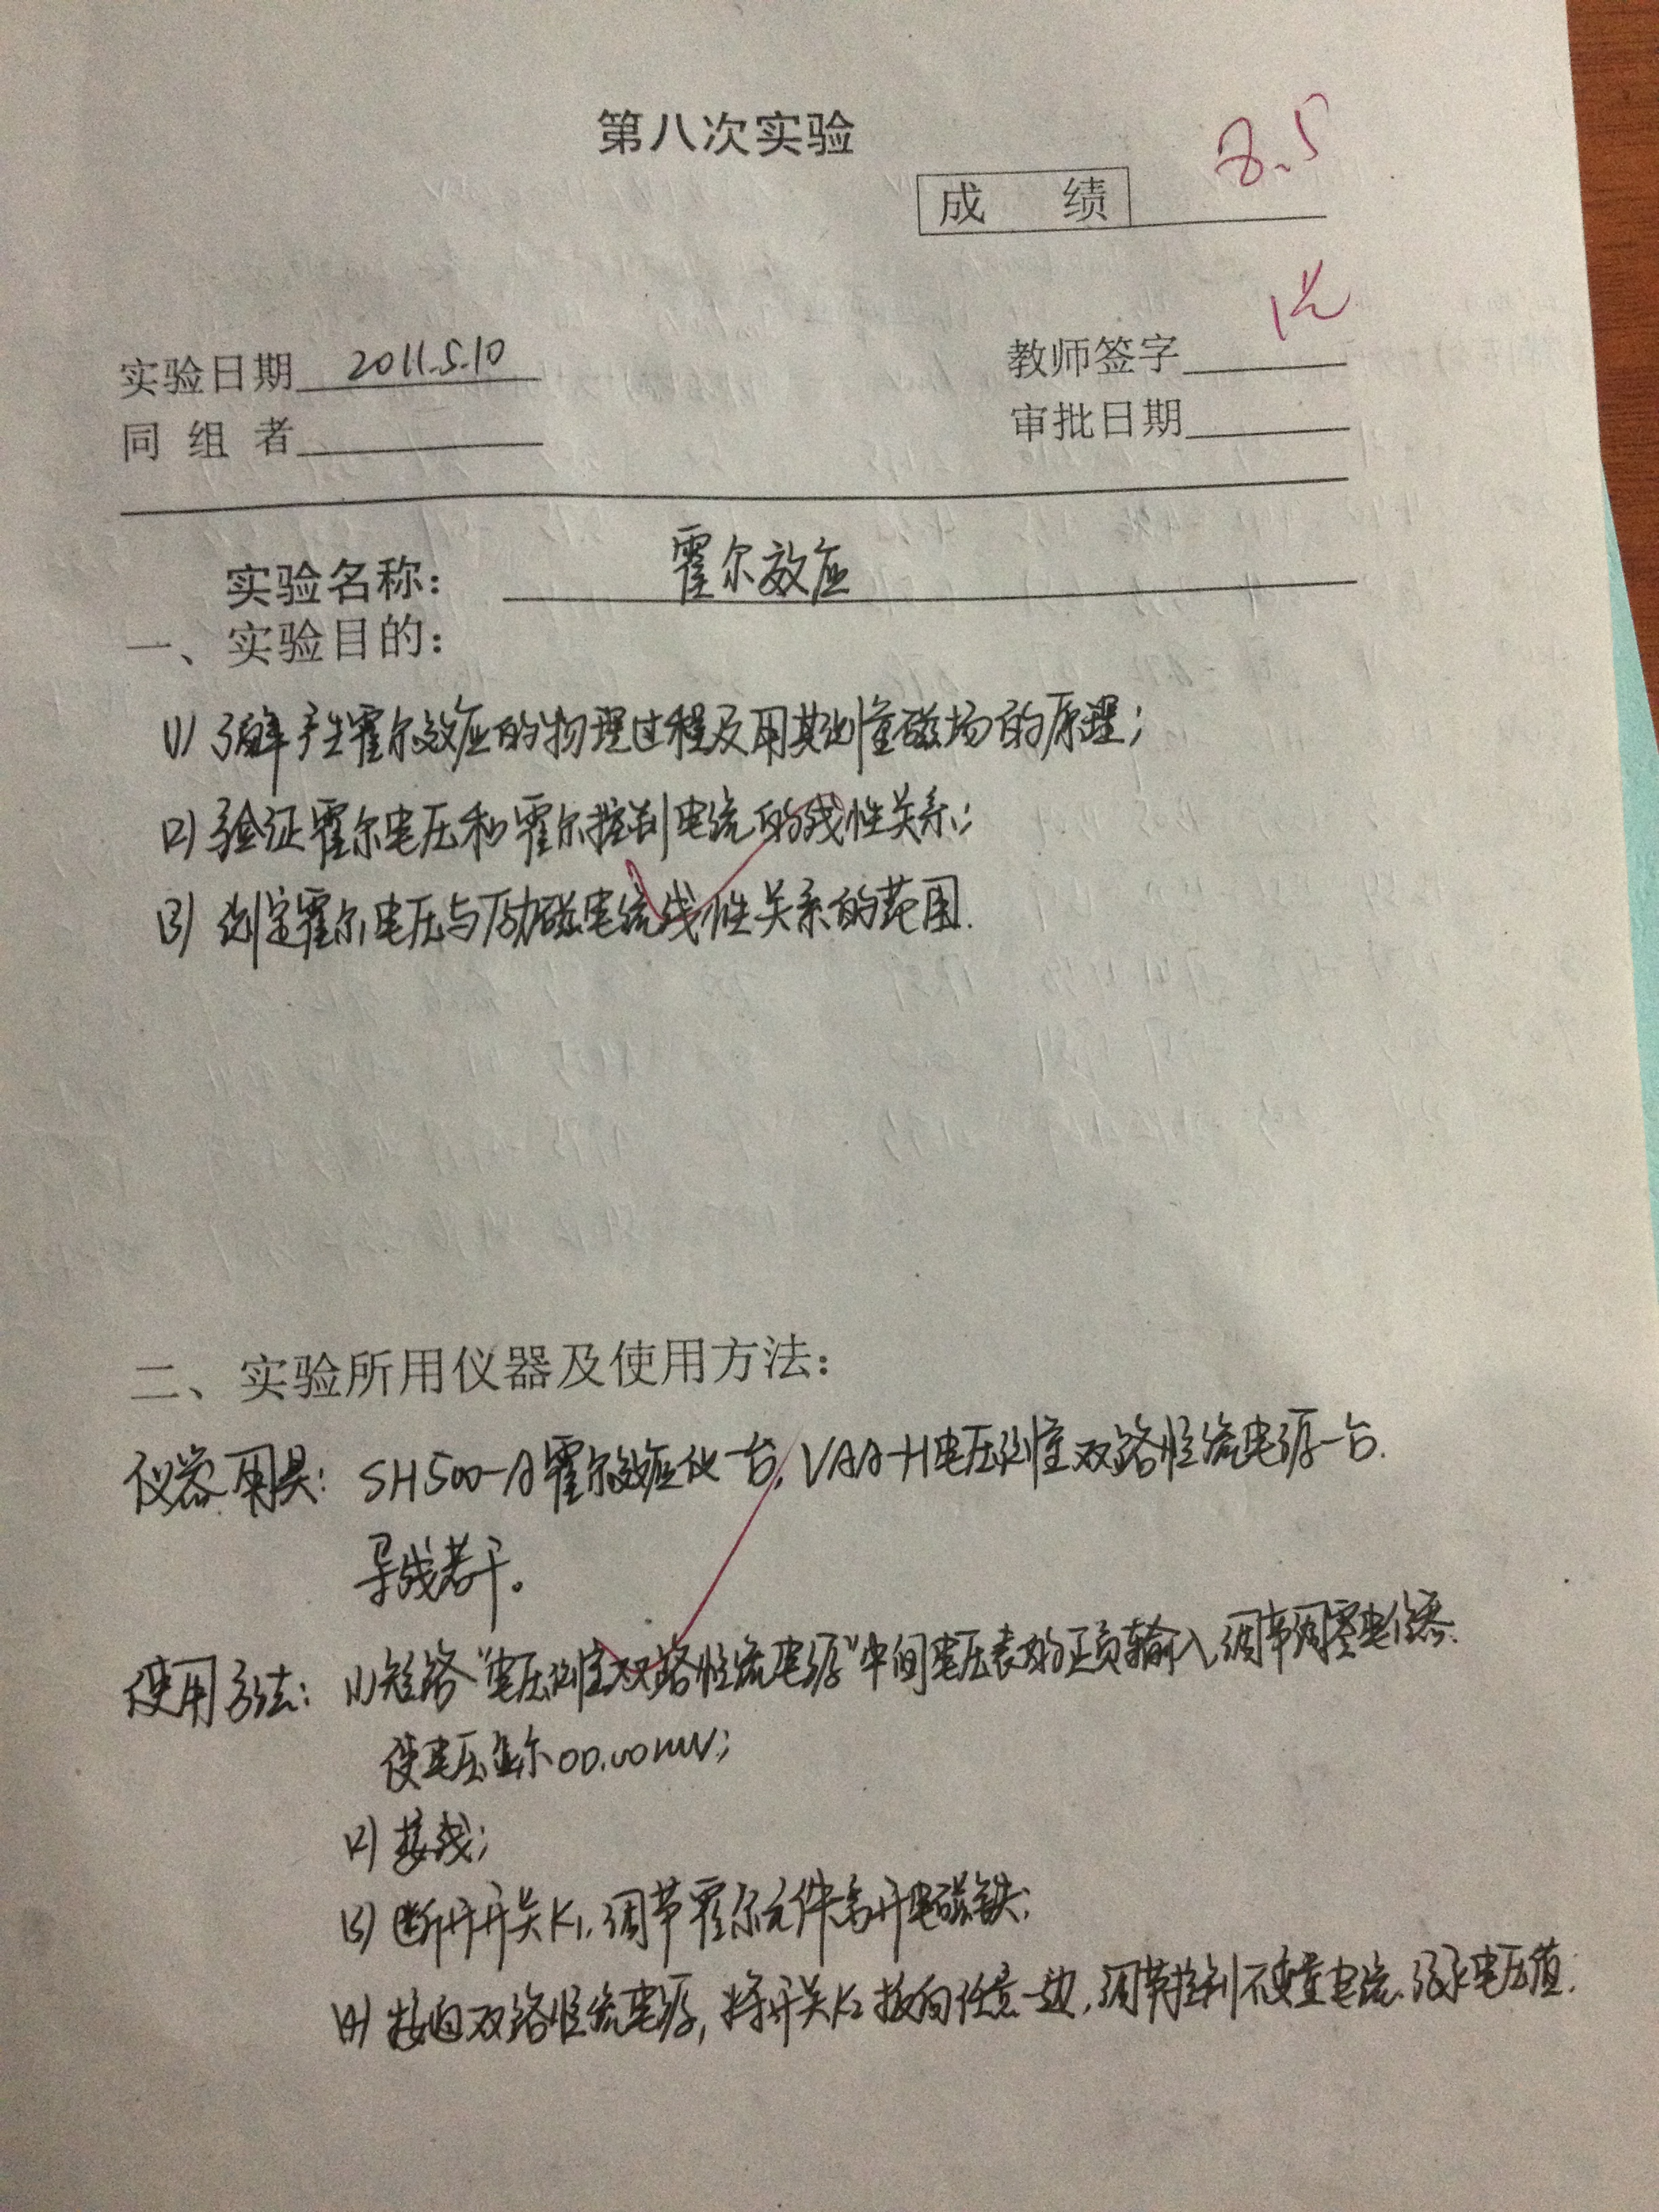 第八次实验
成 绩 8.5
实验日期 2011.5.10 教师签字
同 组 者 审批日期
实验名称： 霍尔效应
一、实验目的：
(1) 了解产生霍尔效应的物理过程及用其测量磁场的原理；
(2) 验证霍尔电压和霍尔控制电流的线性关系；
(3) 测定霍尔电压与励磁电流线性关系的范围.
二、实验所用仪器及使用方法：
仪器用具： SH500-A霍尔效应仪一台，VAA-H电压测量双路恒流电源一台.
导线若干。
使用方法： (1) 短路“电压测量双路恒流电源”中间电压表的正负输入，调节调零电位器.
使电压显示00.00mV；
(2) 接线；
(3) 断开开关K1，调节霍尔元件离开电磁铁；
(4) 接通双路恒流电源，将开关K2扳向任意一边，调节控制 电流. 电压值.